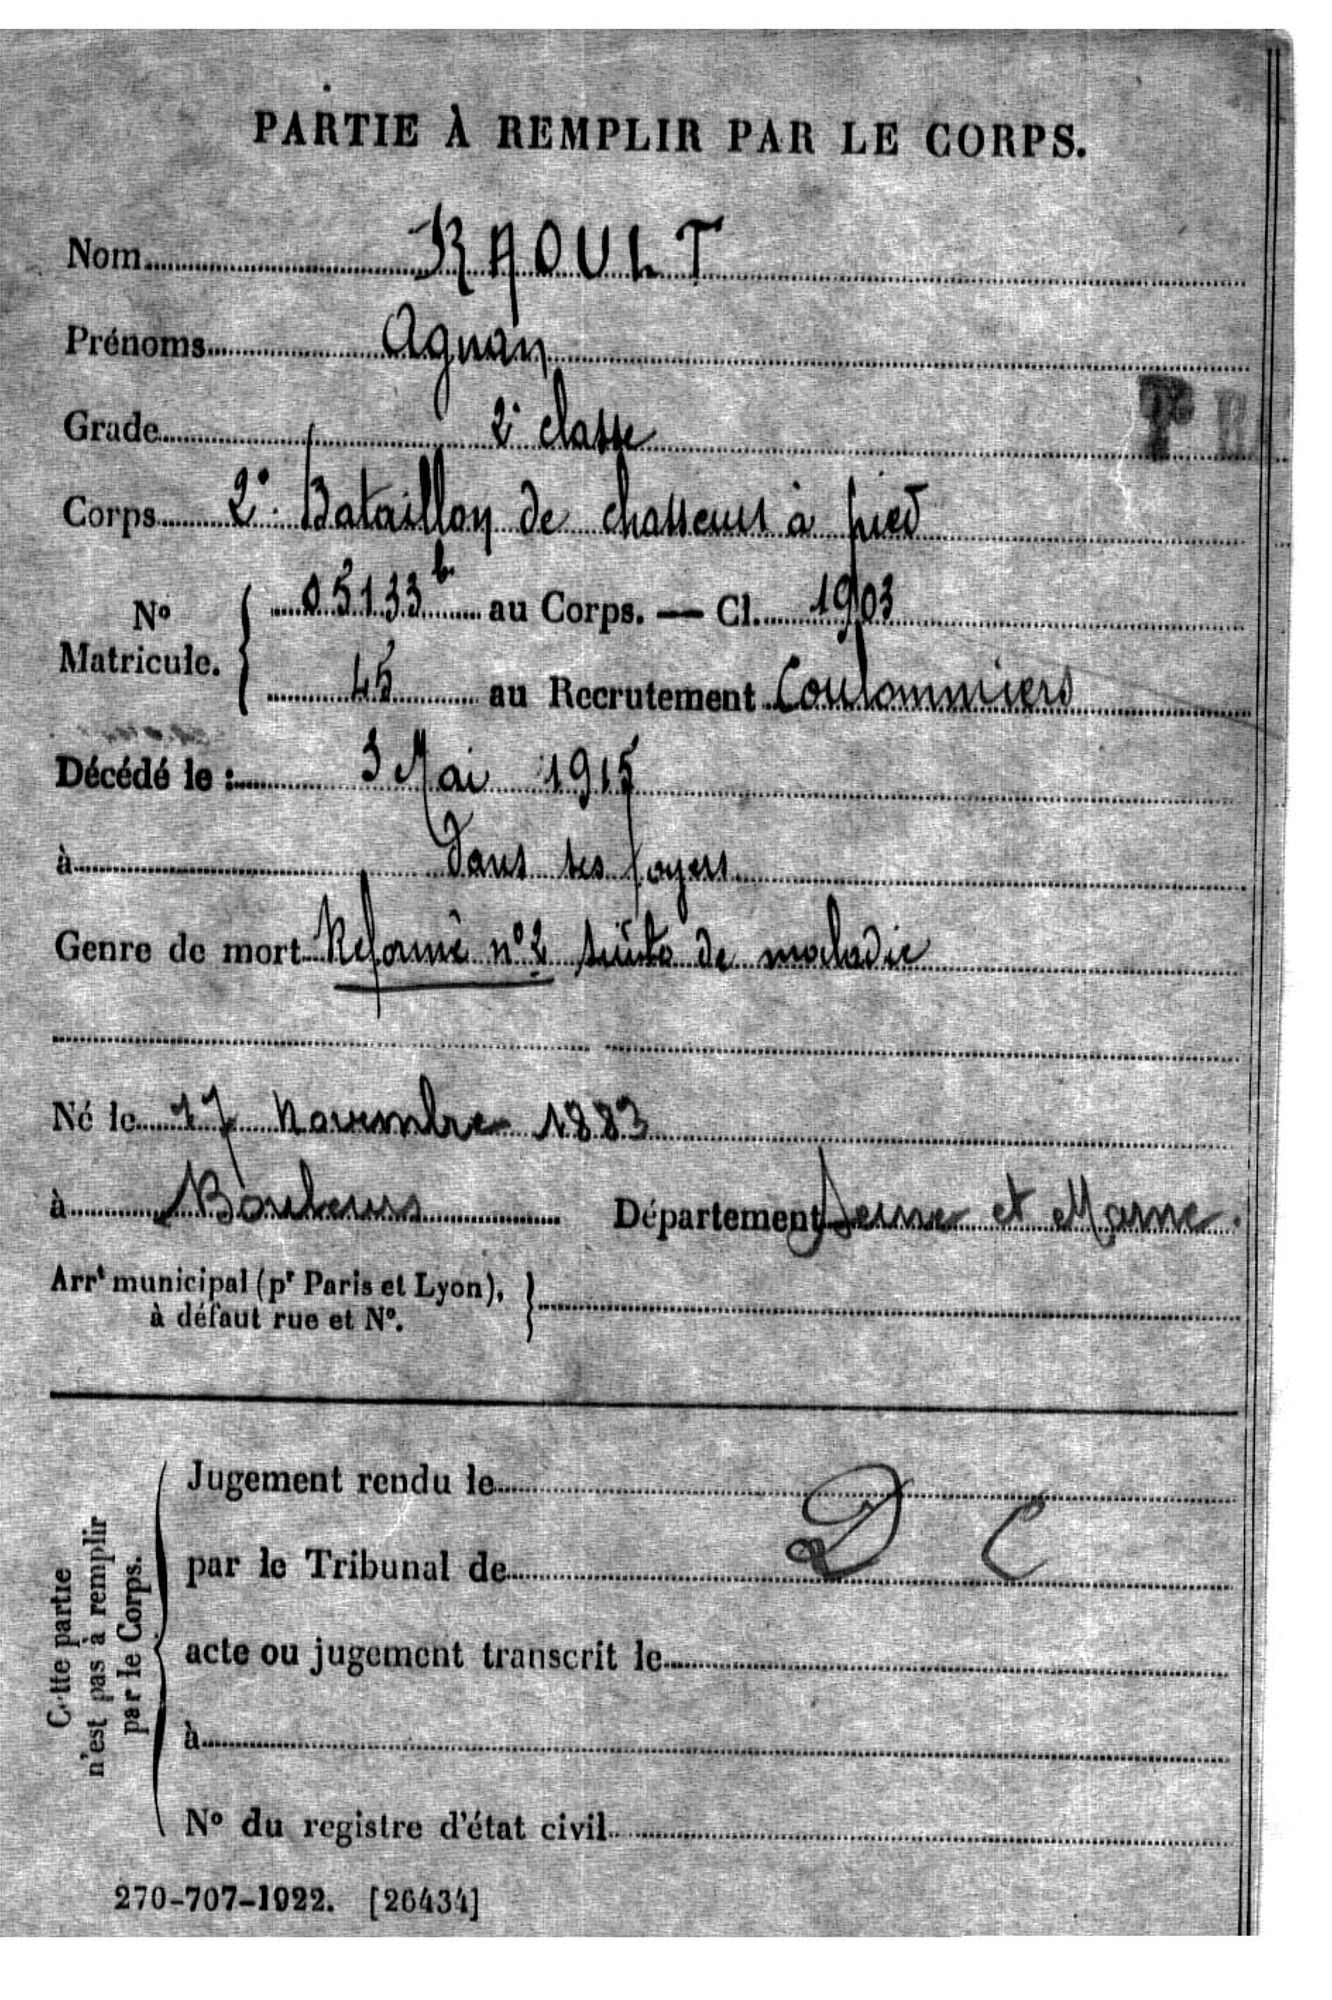 PARTIE À REMPLIR PAR LE CORPS.
Nom RAOULT
Prénoms Agnan
Grade 2e classe
Corps 2e Bataillon de chasseurs à pied
No Matricule. 05133 b au Corps. — Cl. 1903
45 au Recrutement Coulommiers
Décédé le : 3 Mai 1915
à Dans ses foyers
Genre de mort Réformé n° 2 suite de maladie
Né le 17 Novembre 1883
à Bouleurs Département Seine et Marne.
Arrt municipal (pr Paris et Lyon),
à défaut rue et No.
Cette partie
n'est pas à remplir
par le Corps.
Jugement rendu le
par le Tribunal de
D C
acte ou jugement transcrit le
à
No du registre d'état civil
270-707-1922. [26434]